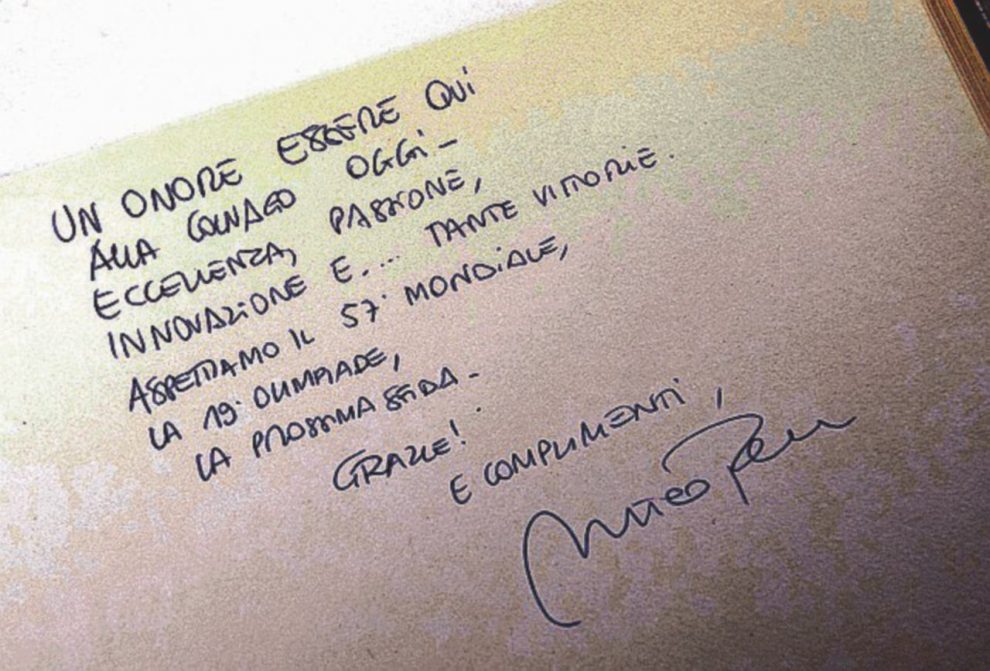 UN ONORE ESSERE QUI
ALLA COLNAGO OGGI -
ECCELLENZA, PASSIONE,
INNOVAZIONE E.... TANTE VITTORIE.
ASPETTIAMO IL 57° MONDIALE,
LA 19° OLIMPIADE,
LA PROSSIMA SFIDA -
GRAZIE!
E COMPLIMENTI,
Matteo